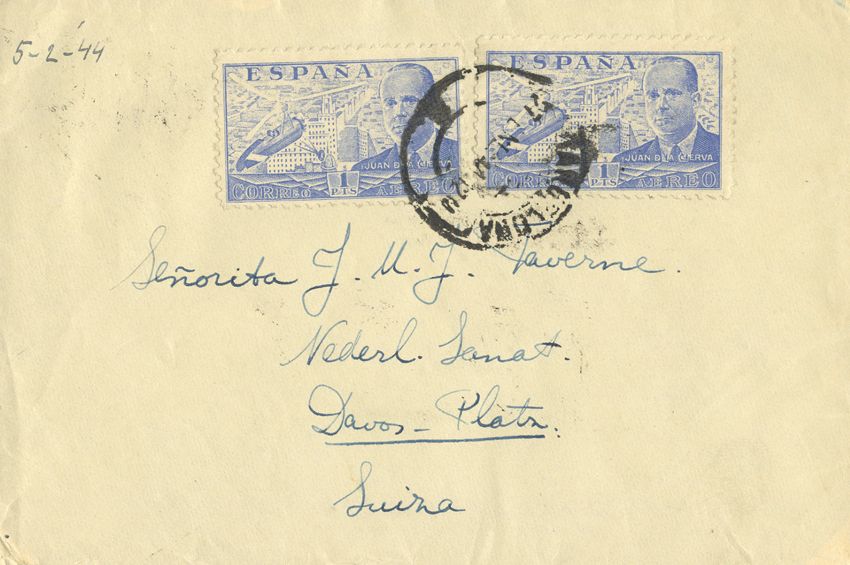 5-2-'44
ESPAÑA
JUAN D LA CIERVA
1 PTS
CORREO AEREO
ESPAÑA
JUAN D LA CIERVA
1 PTS
CORREO AEREO
Señorita J. M. J. Taverne.
Nederl. Sanat.
Davos-Platz.
Suiza